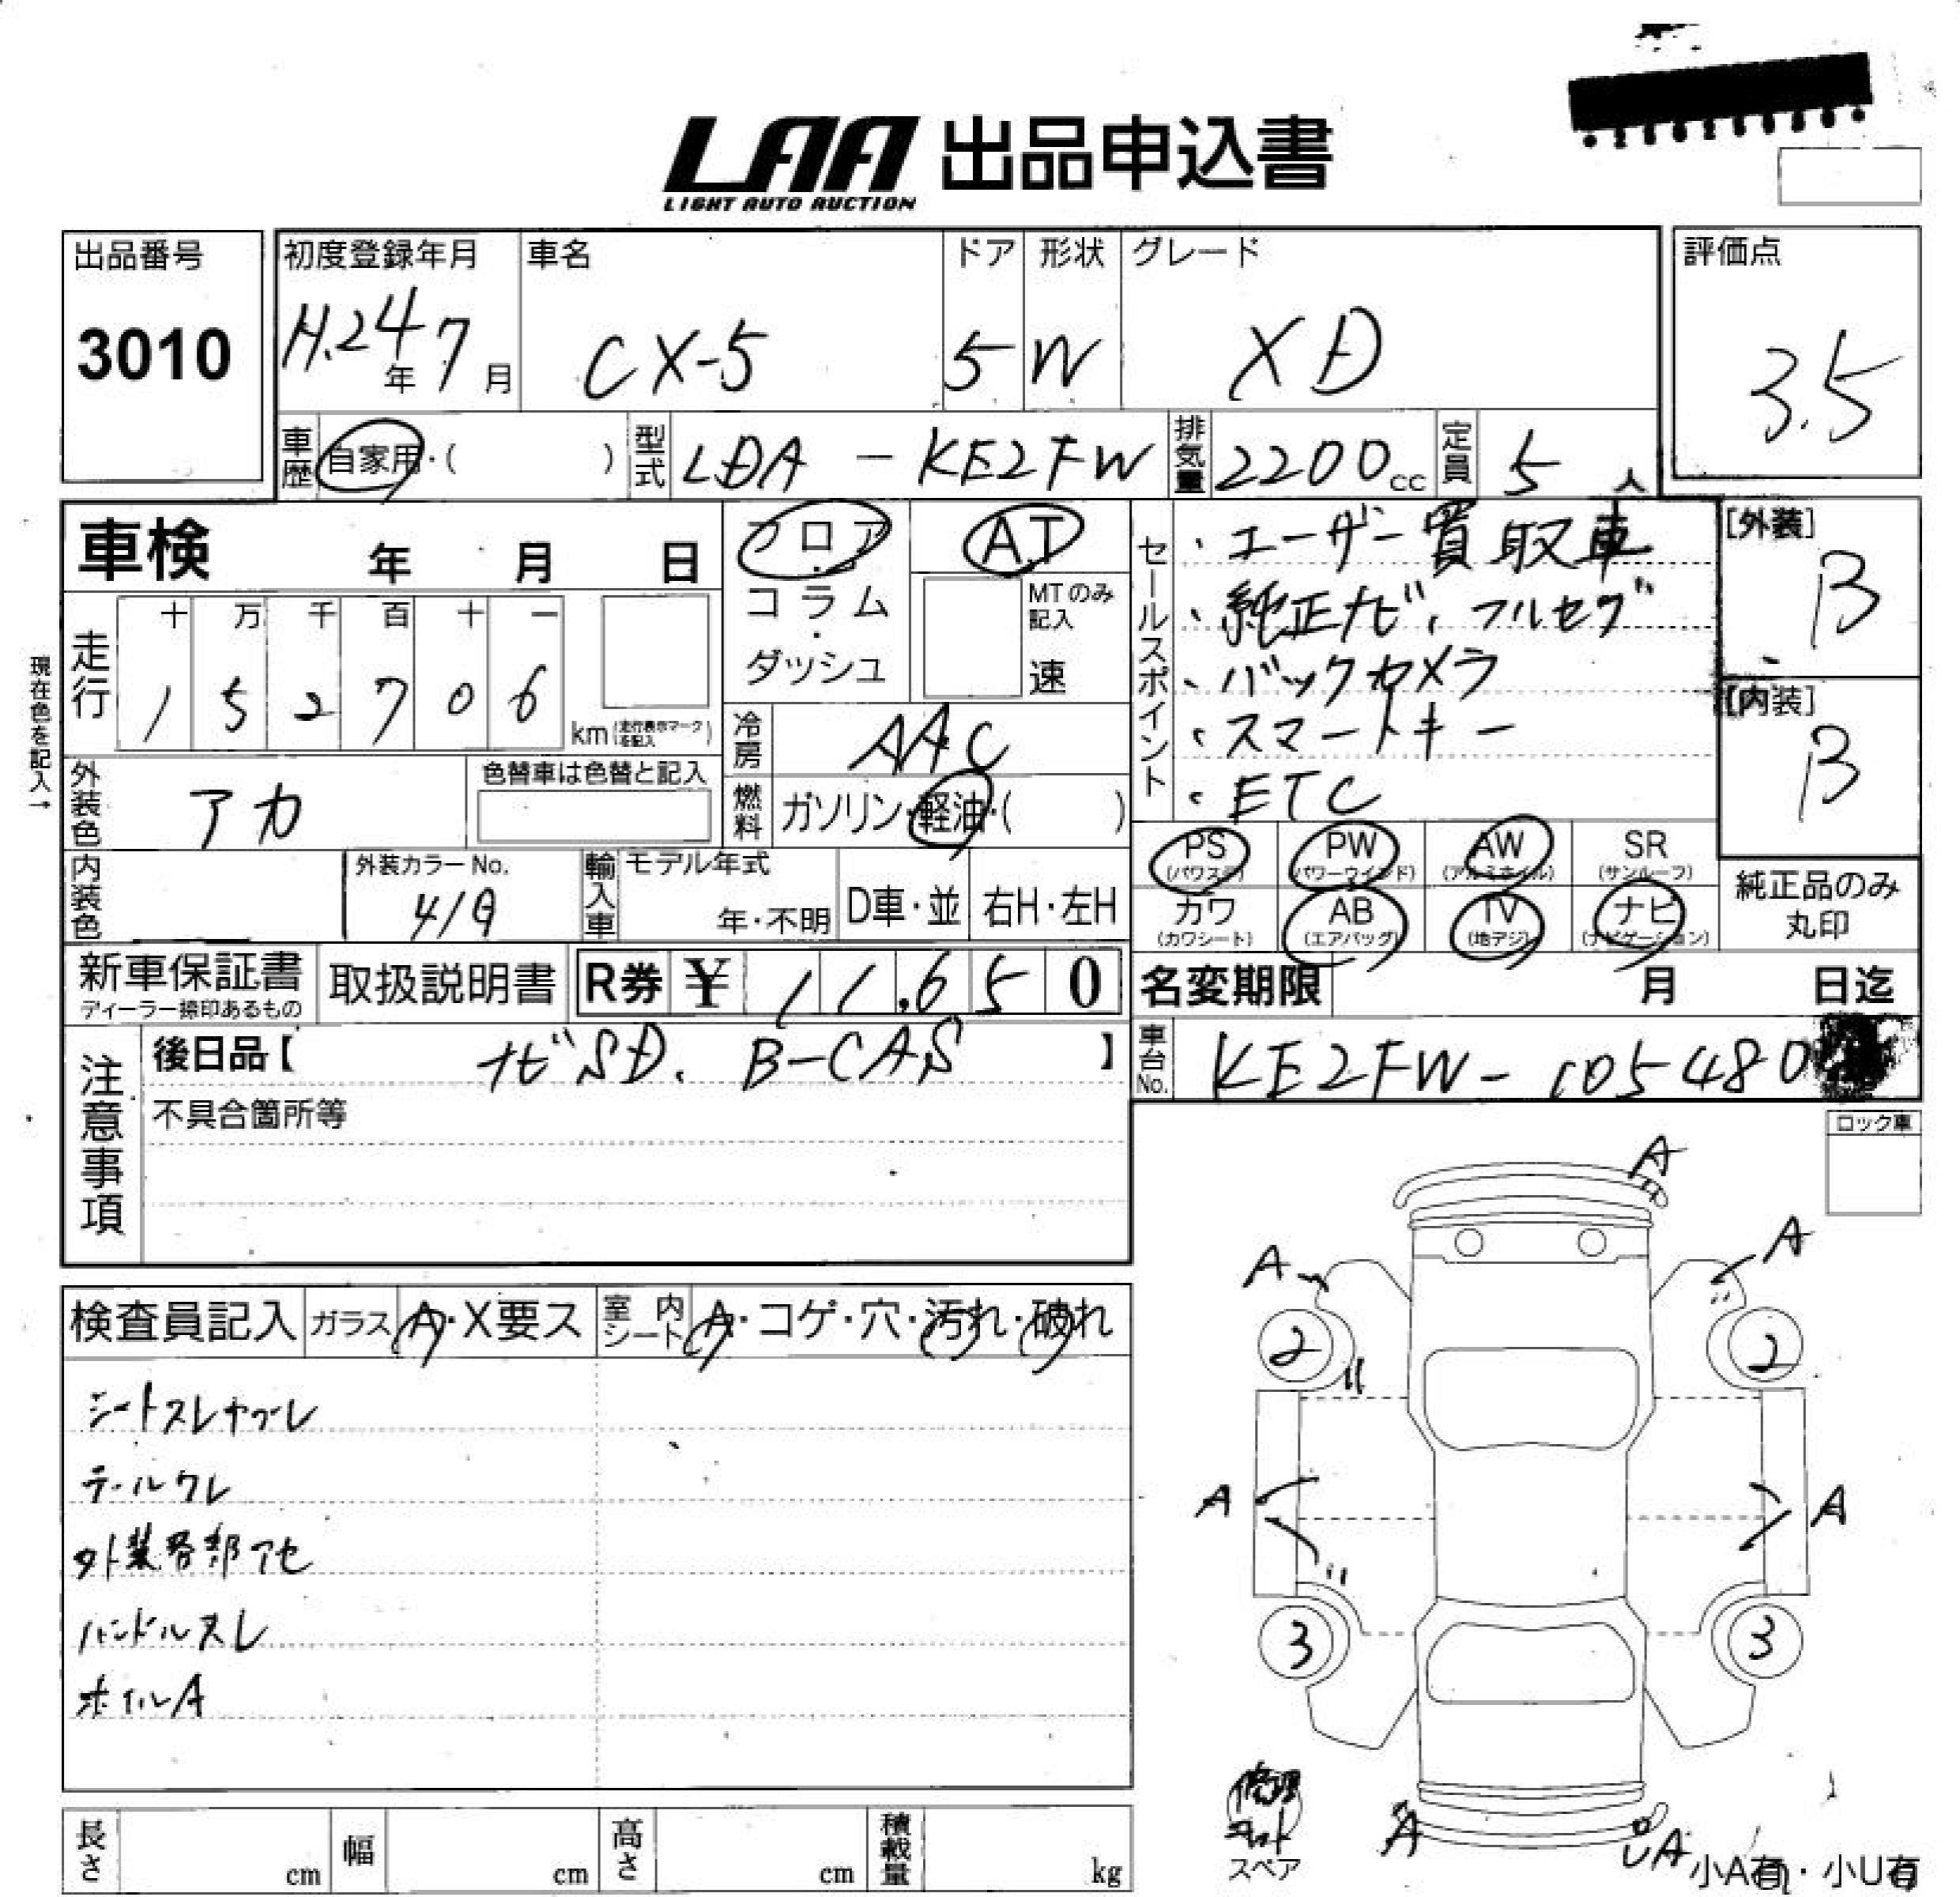 LAA 出品申込書
LIGHT AUTO AUCTION
出品番号
3010
初度登録年月
H.24年 7月
車名
CX-5
ドア
5
形状
W
グレード
XD
評価点
3.5
車歴
自家用・( )
型式
LDA-KE2FW
排気量
2200cc
定員
5人
車検 年 月 日
フロア・コラム・ダッシュ
AT
MTのみ記入
速
セールスポイント
・ユーザー買取車
・純正ナビ、フルセグ
・バックカメラ
・スマートキー
・ETC
[外装]
B
[内装]
B
現在色を記入→
走行
十 万 千 百 十 一
1 5 2 7 0 6
km(走行表示マークを記入)
冷房
AAC
外装色
アカ
色替車は色替と記入
燃料
ガソリン・軽油・( )
PS (パワステ)
PW (パワーウインド)
AW (アルミホイル)
SR (サンルーフ)
カワ (カワシート)
AB (エアバッグ)
TV (地デジ)
ナビ (ナビゲーション)
純正品のみ丸印
内装色
外装カラーNo.
輸入車
モデル年式
年・不明
D車・並
右H・左H
新車保証書
ディーラー捺印あるもの
取扱説明書
R券 ¥ 11,650
名変期限 月 日迄
注意事項
後日品【 ナビSD、B-CAS 】
車台No.
KE2FW-105480
不具合箇所等
ロック車
検査員記入
ガラス A・X要ス
室内シート A・コゲ・穴・汚れ・破れ
シートスレヤブレ
テールワレ
外装各部アセ
ハンドルスレ
ホイルA
A
A
A
2
2
A
A
3
3
修理キット
スペア
A
UA
小A有・小U有
長さ cm
幅 cm
高さ cm
積載量 kg